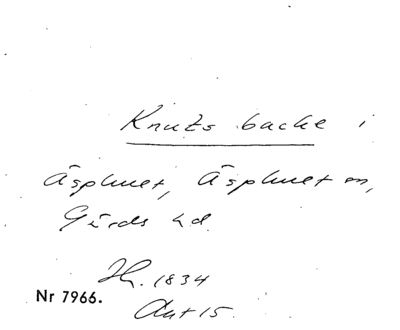 Knuts backe i
Äsphult, Äsphult sn,
Gärds hd.
H. 1834
Nr 7966.
Ant 15.